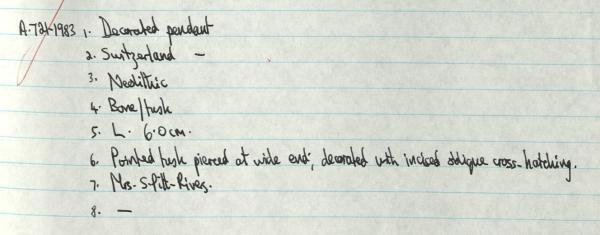 A.721-1983 1. Decorated pendant
2. Switzerland –
3. Neolithic
4. Bone/tusk
5. L. 6.0cm.
6. Pointed tusk pierced at wide end; decorated with incised oblique cross-hatching.
7. Mrs. S. Pitt-Rivers.
8. —